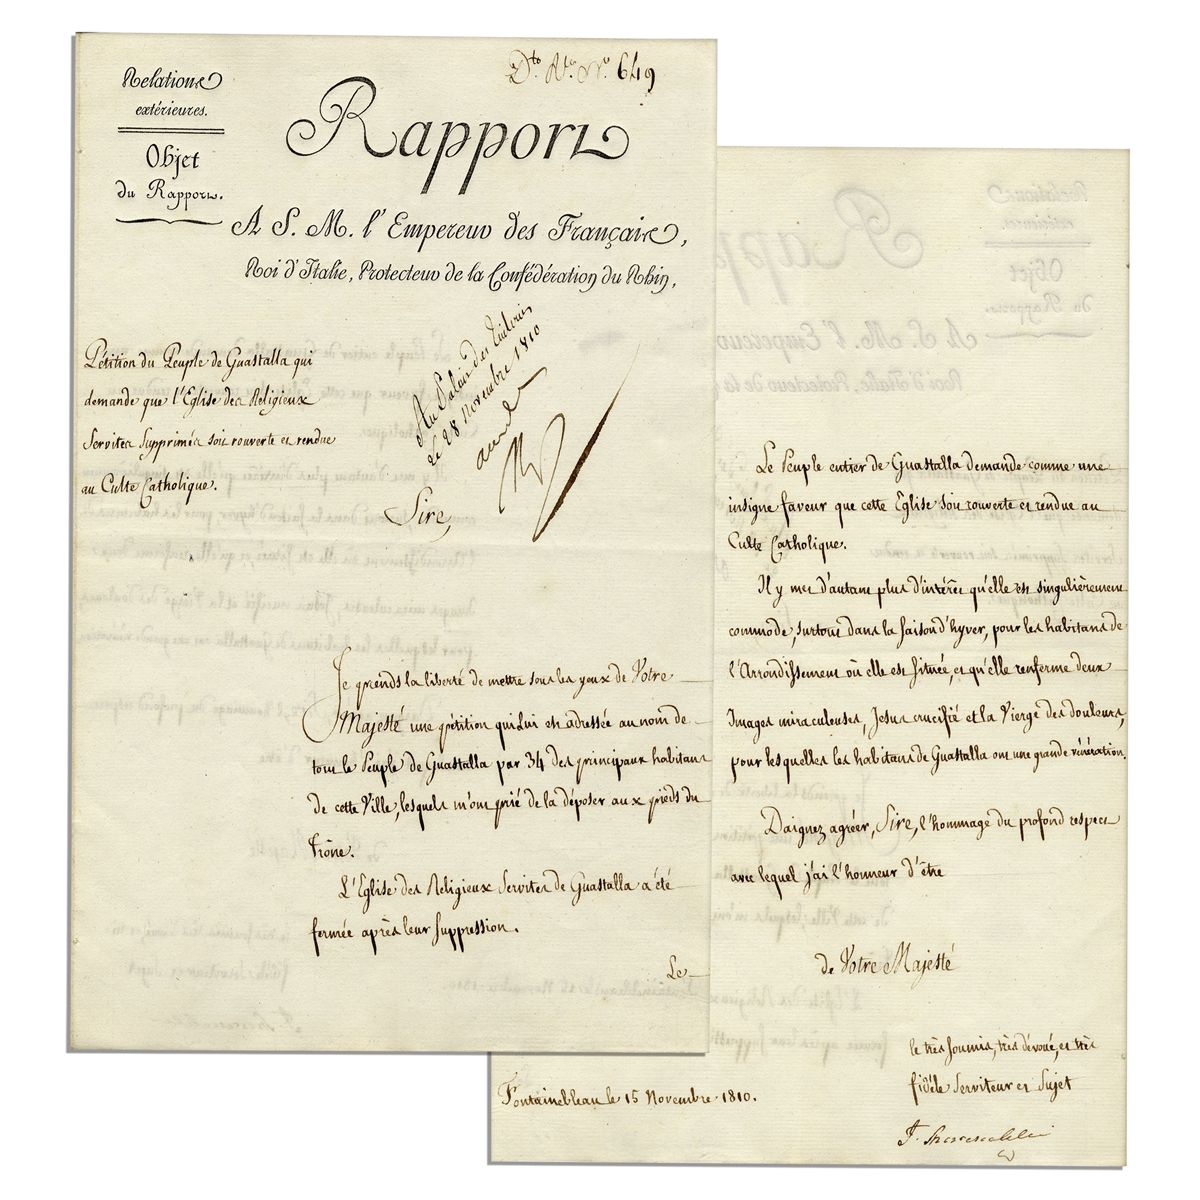 Dto. No. No. 649
Relations
extérieures.
Objet
du Rapport.
Rapport
A S. M. l'Empereur des Français,
Roi d'Italie, Protecteur de la Confédération du Rhin,
Pétition du Peuple de Guastalla qui
demande que l'Eglise des Religieux
Servites Supprimés soit rouverte et rendue
au Culte Catholique.
Au Palais des Tuileries
le 28 Novembre 1810
Sire,
Je prends la liberté de mettre sous les yeux de Votre
Majesté une pétition qui Lui est adressée au nom de
tout le Peuple de Guastalla par 34 des principaux habitans
de cette Ville, lesquels m'ont prié de la déposer aux pieds du
Trône.
L'Eglise des Religieux Servites de Guastalla a été
fermée après leur Suppression.
Le
Le Peuple entier de Guastalla demande comme une
insigne faveur que cette Eglise soit rouverte et rendue au
Culte Catholique.
Il y met d'autant plus d'intérêt qu'elle est singulièrement
commode, surtout dans la saison d'hyver, pour les habitans de
l'Arrondissement où elle est située, et qu'elle renferme deux
Images miraculeuses, Jesus crucifié et la Vierge des douleurs,
pour lesquelles les habitans de Guastalla ont une grande vénération.
Daignez agréer, Sire, l'hommage du profond respect
avec lequel j'ai l'honneur d'être
de Votre Majesté
le très soumis, très dévoué, et très
fidèle Serviteur et Sujet
Fontainebleau le 15 Novembre 1810.